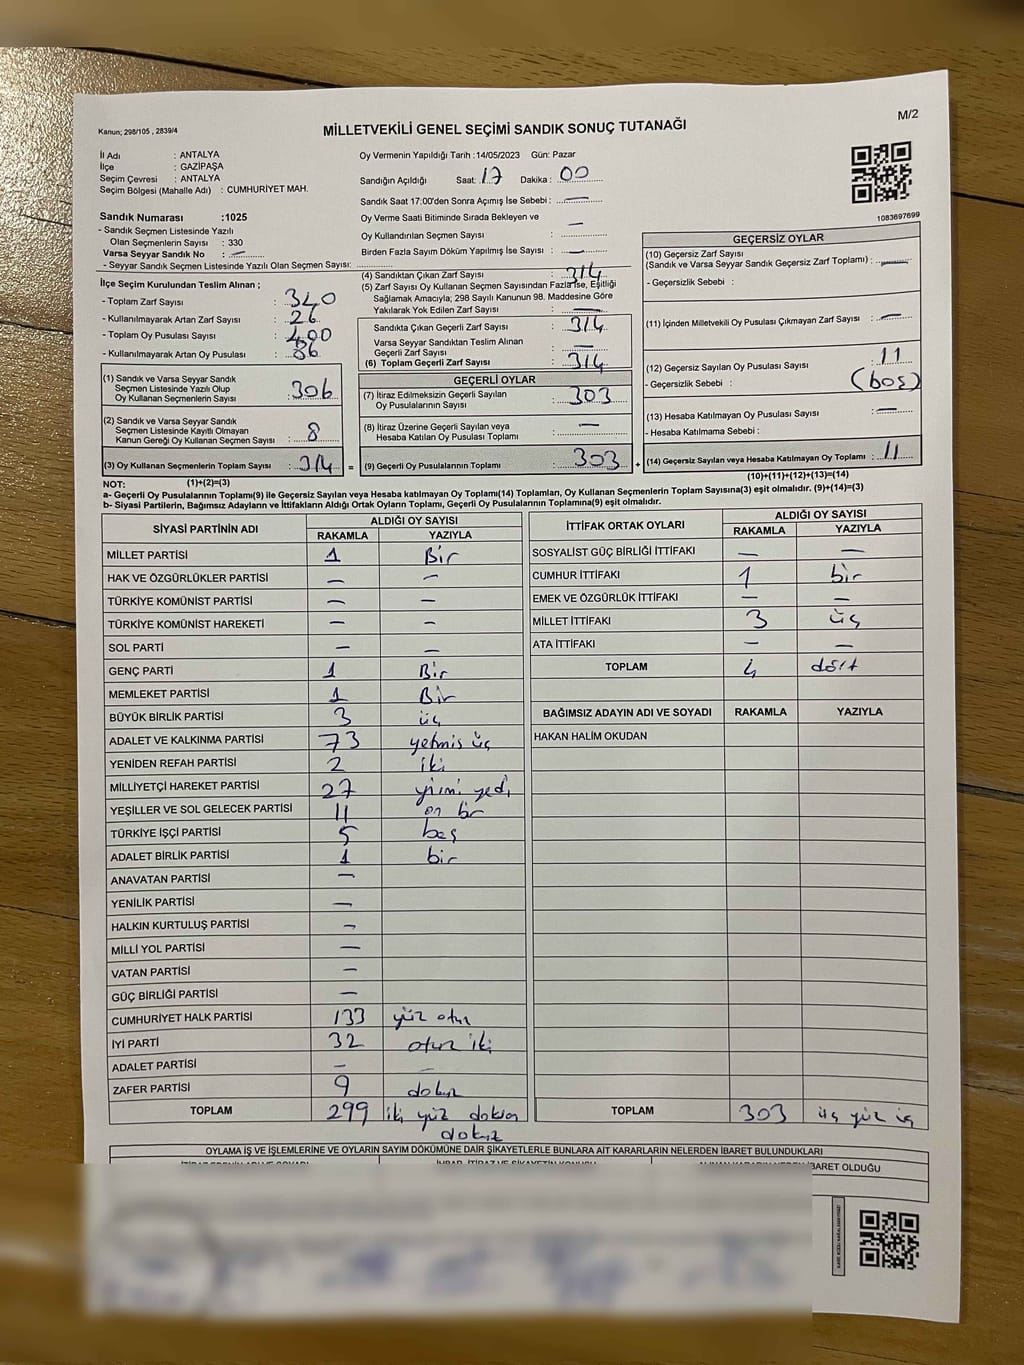 M/2
Kanun; 298/105 , 2839/4
MİLLETVEKİLİ GENEL SEÇİMİ SANDIK SONUÇ TUTANAĞI
İl Adı : ANTALYA
İlçe : GAZİPAŞA
Seçim Çevresi : ANTALYA
Seçim Bölgesi (Mahalle Adı) : CUMHURİYET MAH.
Sandık Numarası :1025
- Sandık Seçmen Listesinde Yazılı
Olan Seçmenlerin Sayısı : 330
Varsa Seyyar Sandık No : —
- Seyyar Sandık Seçmen Listesinde Yazılı Olan Seçmen Sayısı:
Oy Vermenin Yapıldığı Tarih :14/05/2023 Gün: Pazar
Sandığın Açıldığı Saat: 17 Dakika : 00
Sandık Saat 17:00'den Sonra Açımış İse Sebebi : —
Oy Verme Saati Bitiminde Sırada Bekleyen ve
Oy Kullandırılan Seçmen Sayısı : —
Birden Fazla Sayım Döküm Yapılmış İse Sayısı : —
1083697699
İlçe Seçim Kurulundan Teslim Alınan ;
- Toplam Zarf Sayısı : 340
- Kullanılmayarak Artan Zarf Sayısı : 26
- Toplam Oy Pusulası Sayısı : 400
- Kullanılmayarak Artan Oy Pusulası : 86
(1) Sandık ve Varsa Seyyar Sandık
Seçmen Listesinde Yazılı Olup
Oy Kullanan Seçmenlerin Sayısı : 306
(2) Sandık ve Varsa Seyyar Sandık
Seçmen Listesinde Kayıtlı Olmayan
Kanun Gereği Oy Kullanan Seçmen Sayısı : 8
(3) Oy Kullanan Seçmenlerin Toplam Sayısı : 314 =
(4) Sandıktan Çıkan Zarf Sayısı : 314
(5) Zarf Sayısı Oy Kullanan Seçmen Sayısından Fazla İse, Eşitliği
Sağlamak Amacıyla; 298 Sayılı Kanunun 98. Maddesine Göre
Yakılarak Yok Edilen Zarf Sayısı : —
Sandıkta Çıkan Geçerli Zarf Sayısı : 314
Varsa Seyyar Sandıktan Teslim Alınan
Geçerli Zarf Sayısı : —
(6) Toplam Geçerli Zarf Sayısı : 314
GEÇERLİ OYLAR
(7) İtiraz Edilmeksizin Geçerli Sayılan
Oy Pusulalarının Sayısı : 303
(8) İtiraz Üzerine Geçerli Sayılan veya
Hesaba Katılan Oy Pusulası Toplamı : —
(9) Geçerli Oy Pusulalarının Toplamı : 303 +
GEÇERSİZ OYLAR
(10) Geçersiz Zarf Sayısı
(Sandık ve Varsa Seyyar Sandık Geçersiz Zarf Toplamı) : —
- Geçersizlik Sebebi :
(11) İçinden Milletvekili Oy Pusulası Çıkmayan Zarf Sayısı : —
(12) Geçersiz Sayılan Oy Pusulası Sayısı : 11
- Geçersizlik Sebebi : (boş)
(13) Hesaba Katılmayan Oy Pusulası Sayısı : —
- Hesaba Katılmama Sebebi :
(14) Geçersiz Sayılan veya Hesaba Katılmayan Oy Toplamı : 11
NOT: (1)+(2)=(3) (10)+(11)+(12)+(13)=(14)
a- Geçerli Oy Pusulalarının Toplamı(9) ile Geçersiz Sayılan veya Hesaba katılmayan Oy Toplamı(14) Toplamları, Oy Kullanan Seçmenlerin Toplam Sayısına(3) eşit olmalıdır. (9)+(14)=(3)
b- Siyasi Partilerin, Bağımsız Adayların ve İttifakların Aldığı Ortak Oyların Toplamı, Geçerli Oy Pusulalarının Toplamına(9) eşit olmalıdır.
SİYASİ PARTİNİN ADI ALDIĞI OY SAYISI
RAKAMLA YAZIYLA
MİLLET PARTİSİ 1 Bir
HAK VE ÖZGÜRLÜKLER PARTİSİ — —
TÜRKİYE KOMÜNİST PARTİSİ — —
TÜRKİYE KOMÜNİST HAREKETİ — —
SOL PARTİ — —
GENÇ PARTİ 1 Bir
MEMLEKET PARTİSİ 1 Bir
BÜYÜK BİRLİK PARTİSİ 3 üç
ADALET VE KALKINMA PARTİSİ 73 yetmis üç
YENİDEN REFAH PARTİSİ 2 iki
MİLLİYETÇİ HAREKET PARTİSİ 27 yirmi yedi
YEŞİLLER VE SOL GELECEK PARTİSİ 11 on bir
TÜRKİYE İŞÇİ PARTİSİ 5 beş
ADALET BİRLİK PARTİSİ 1 bir
ANAVATAN PARTİSİ —
YENİLİK PARTİSİ —
HALKIN KURTULUŞ PARTİSİ —
MİLLİ YOL PARTİSİ —
VATAN PARTİSİ —
GÜÇ BİRLİĞİ PARTİSİ —
CUMHURİYET HALK PARTİSİ 133 yüz otuz
İYİ PARTİ 32 otuz iki
ADALET PARTİSİ — —
ZAFER PARTİSİ 9 dokuz
TOPLAM 299 iki yüz doksan
dokuz
İTTİFAK ORTAK OYLARI ALDIĞI OY SAYISI
RAKAMLA YAZIYLA
SOSYALİST GÜÇ BİRLİĞİ İTTİFAKI — —
CUMHUR İTTİFAKI 1 bir
EMEK VE ÖZGÜRLÜK İTTİFAKI — —
MİLLET İTTİFAKI 3 üç
ATA İTTİFAKI — —
TOPLAM 4 dört
BAĞIMSIZ ADAYIN ADI VE SOYADI RAKAMLA YAZIYLA
HAKAN HALİM OKUDAN
TOPLAM 303 üç yüz üç
OYLAMA İŞ VE İŞLEMLERİNE VE OYLARIN SAYIM DÖKÜMÜNE DAİR ŞİKAYETLERLE BUNLARA AİT KARARLARIN NELERDEN İBARET BULUNDUKLARI
İBARET OLDUĞU